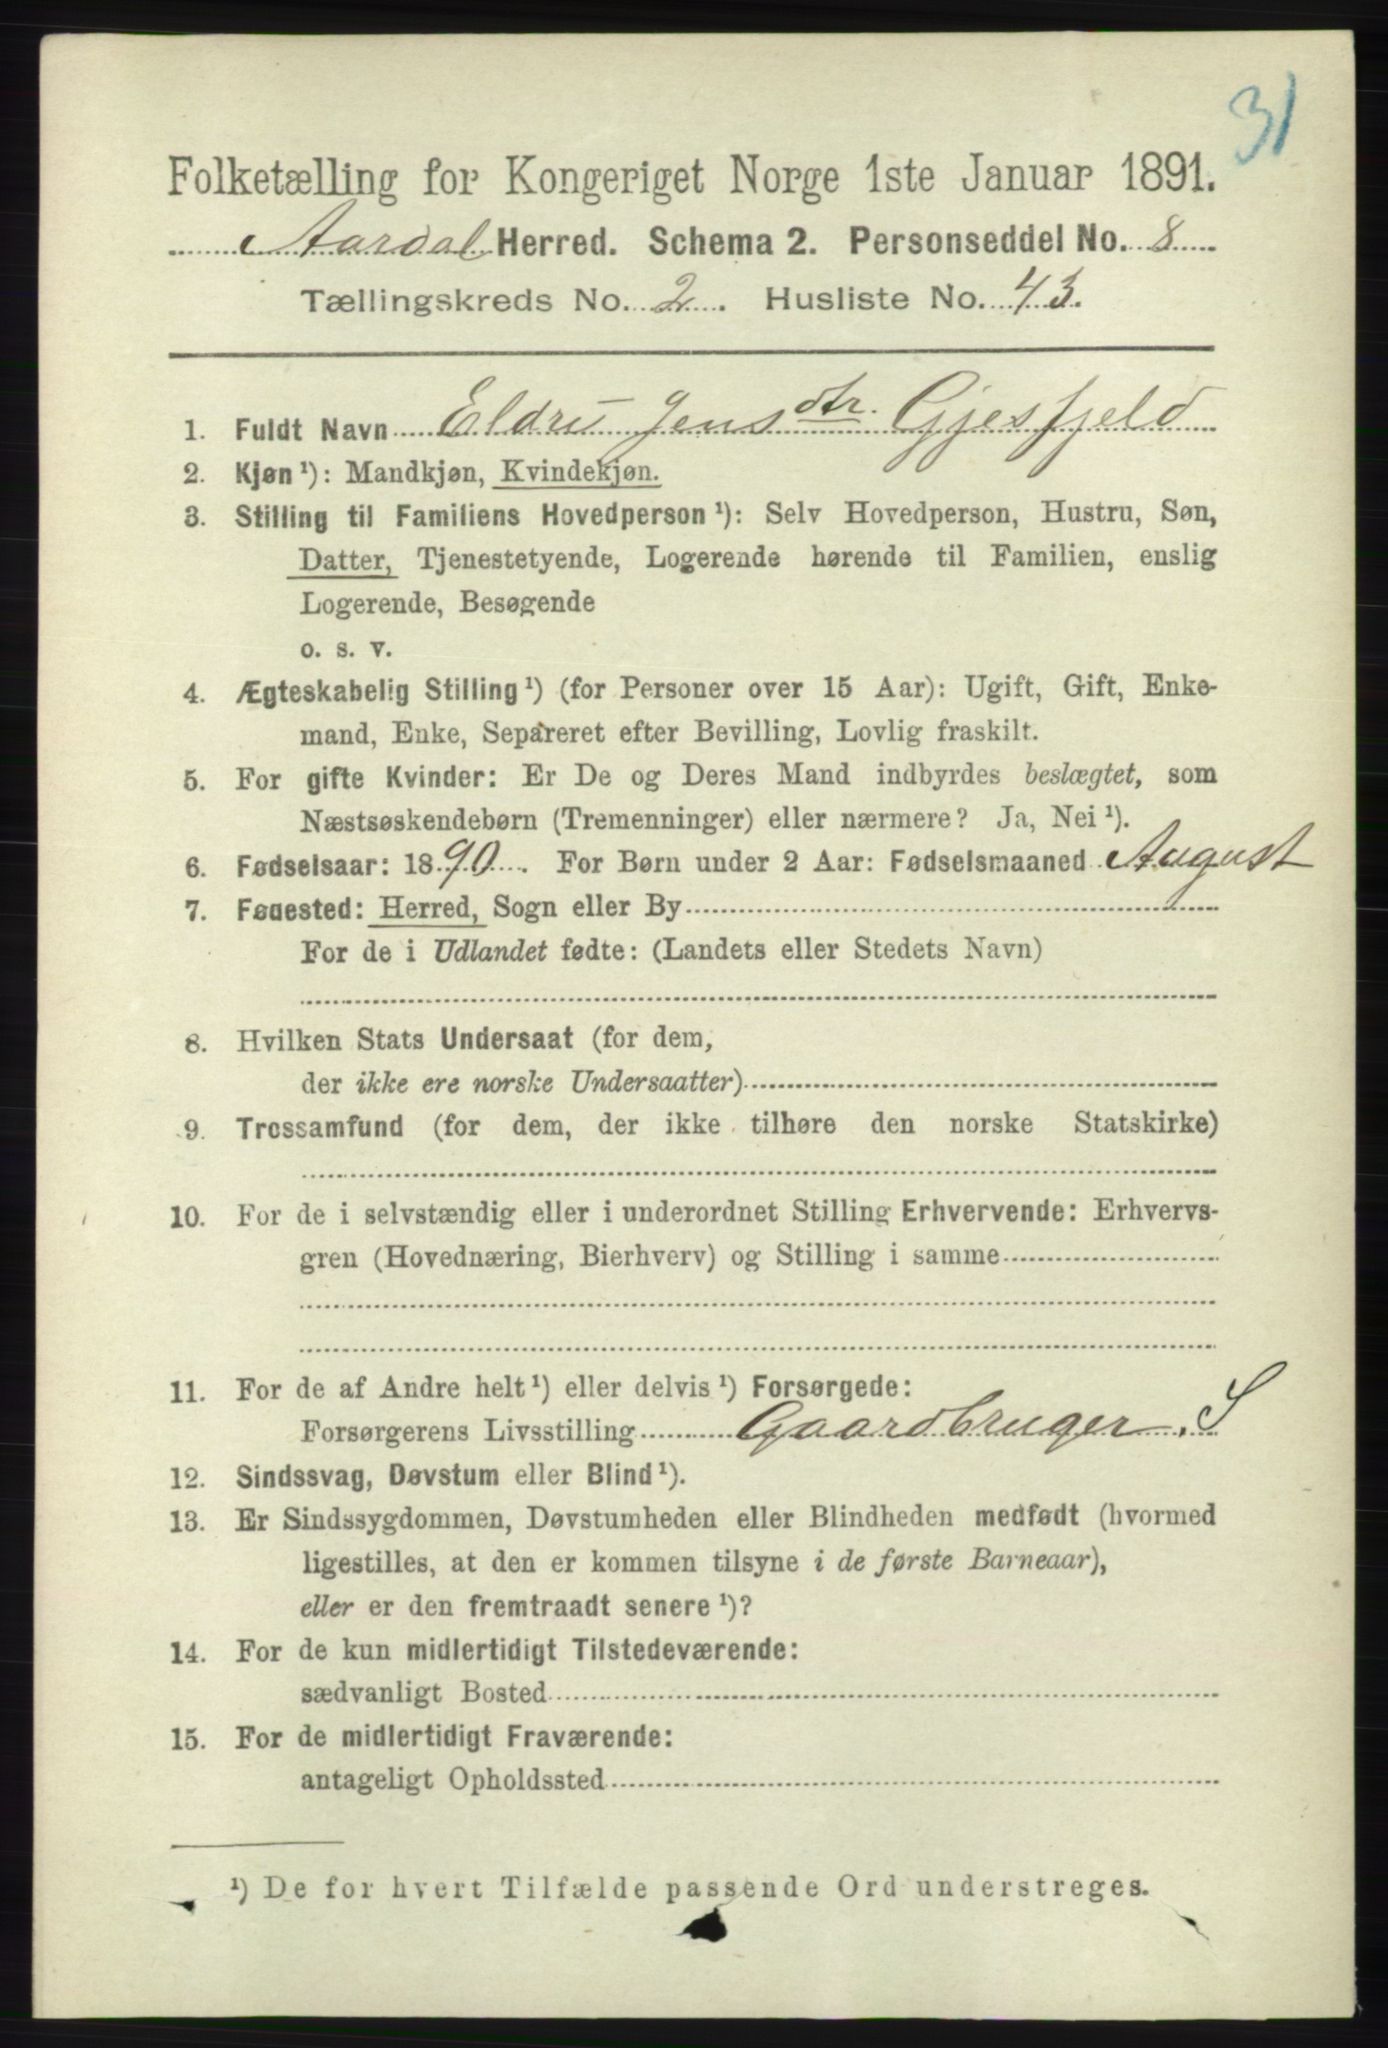 31
Folketælling for Kongeriget Norge 1ste Januar 1891.
Aardal Herred. Schema 2. Personseddel No. 8
Tællingskreds No. 2. Husliste No. 43.
1. Fuldt Navn Eldri Jensdtr. Gjesfjeld
2. Kjøn¹): Mandkjøn, Kvindekjøn.
3. Stilling til Familiens Hovedperson¹): Selv Hovedperson, Hustru, Søn,
Datter, Tjenestetyende, Logerende hørende til Familien, enslig
Logerende, Besøgende
o. s. v.
4. Ægteskabelig Stilling¹) (for Personer over 15 Aar): Ugift, Gift, Enke-
mand, Enke, Separeret efter Bevilling, Lovlig fraskilt.
5. For gifte Kvinder: Er De og Deres Mand indbyrdes beslægtet, som
Næstsøskendebørn (Tremenninger) eller nærmere? Ja, Nei¹).
6. Fødselsaar: 1890. For Børn under 2 Aar: Fødselsmaaned August
7. Fødested: Herred, Sogn eller By
For de i Udlandet fødte: (Landets eller Stedets Navn)
8. Hvilken Stats Undersaat (for dem,
der ikke ere norske Undersaatter)
9. Trossamfund (for dem, der ikke tilhøre den norske Statskirke)
10. For de i selvstændig eller i underordnet Stilling Erhvervende: Erhvervs-
gren (Hovednæring, Bierhverv) og Stilling i samme
11. For de af Andre helt¹) eller delvis¹) Forsørgede:
Forsørgerens Livsstilling Gaardbruger. S
12. Sindssvag, Døvstum eller Blind¹).
13. Er Sindssygdommen, Døvstumheden eller Blindheden medfødt (hvormed
ligestilles, at den er kommen tilsyne i de første Barneaar),
eller er den fremtraadt senere¹)?
14. For de kun midlertidigt Tilstedeværende:
sædvanligt Bosted
15. For de midlertidigt Fraværende:
antageligt Opholdssted
¹) De for hvert Tilfælde passende Ord understreges.